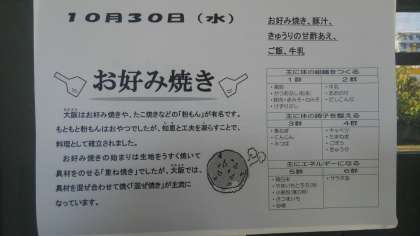 10月30日（水）
お好み焼き
大阪はお好み焼きや、たこ焼きなどの「粉もん」が有名です。
もともと粉もんはおやつでしたが、知恵と工夫を凝らすことで、
料理として確立されました。
お好み焼きの始まりは生地をうすく焼いて
具材をのせる「重ね焼き」でしたが、大阪では、
具材を混ぜ合わせて焼く「混ぜ焼き」が主流に
なっています。
お好み焼き、豚汁、
きゅうりの甘酢あえ、
ご飯、牛乳
主に体の組織をつくる
1群 2群
・牛乳
・あおのり
・だしこんぶ
主に体の調子を整える
3群 4群
・にんじん
・キャベツ
・たまねぎ
・ごぼう
・きゅうり
主にエネルギーになる
5群 6群
・サラダ油
・さつまいも
・砂糖